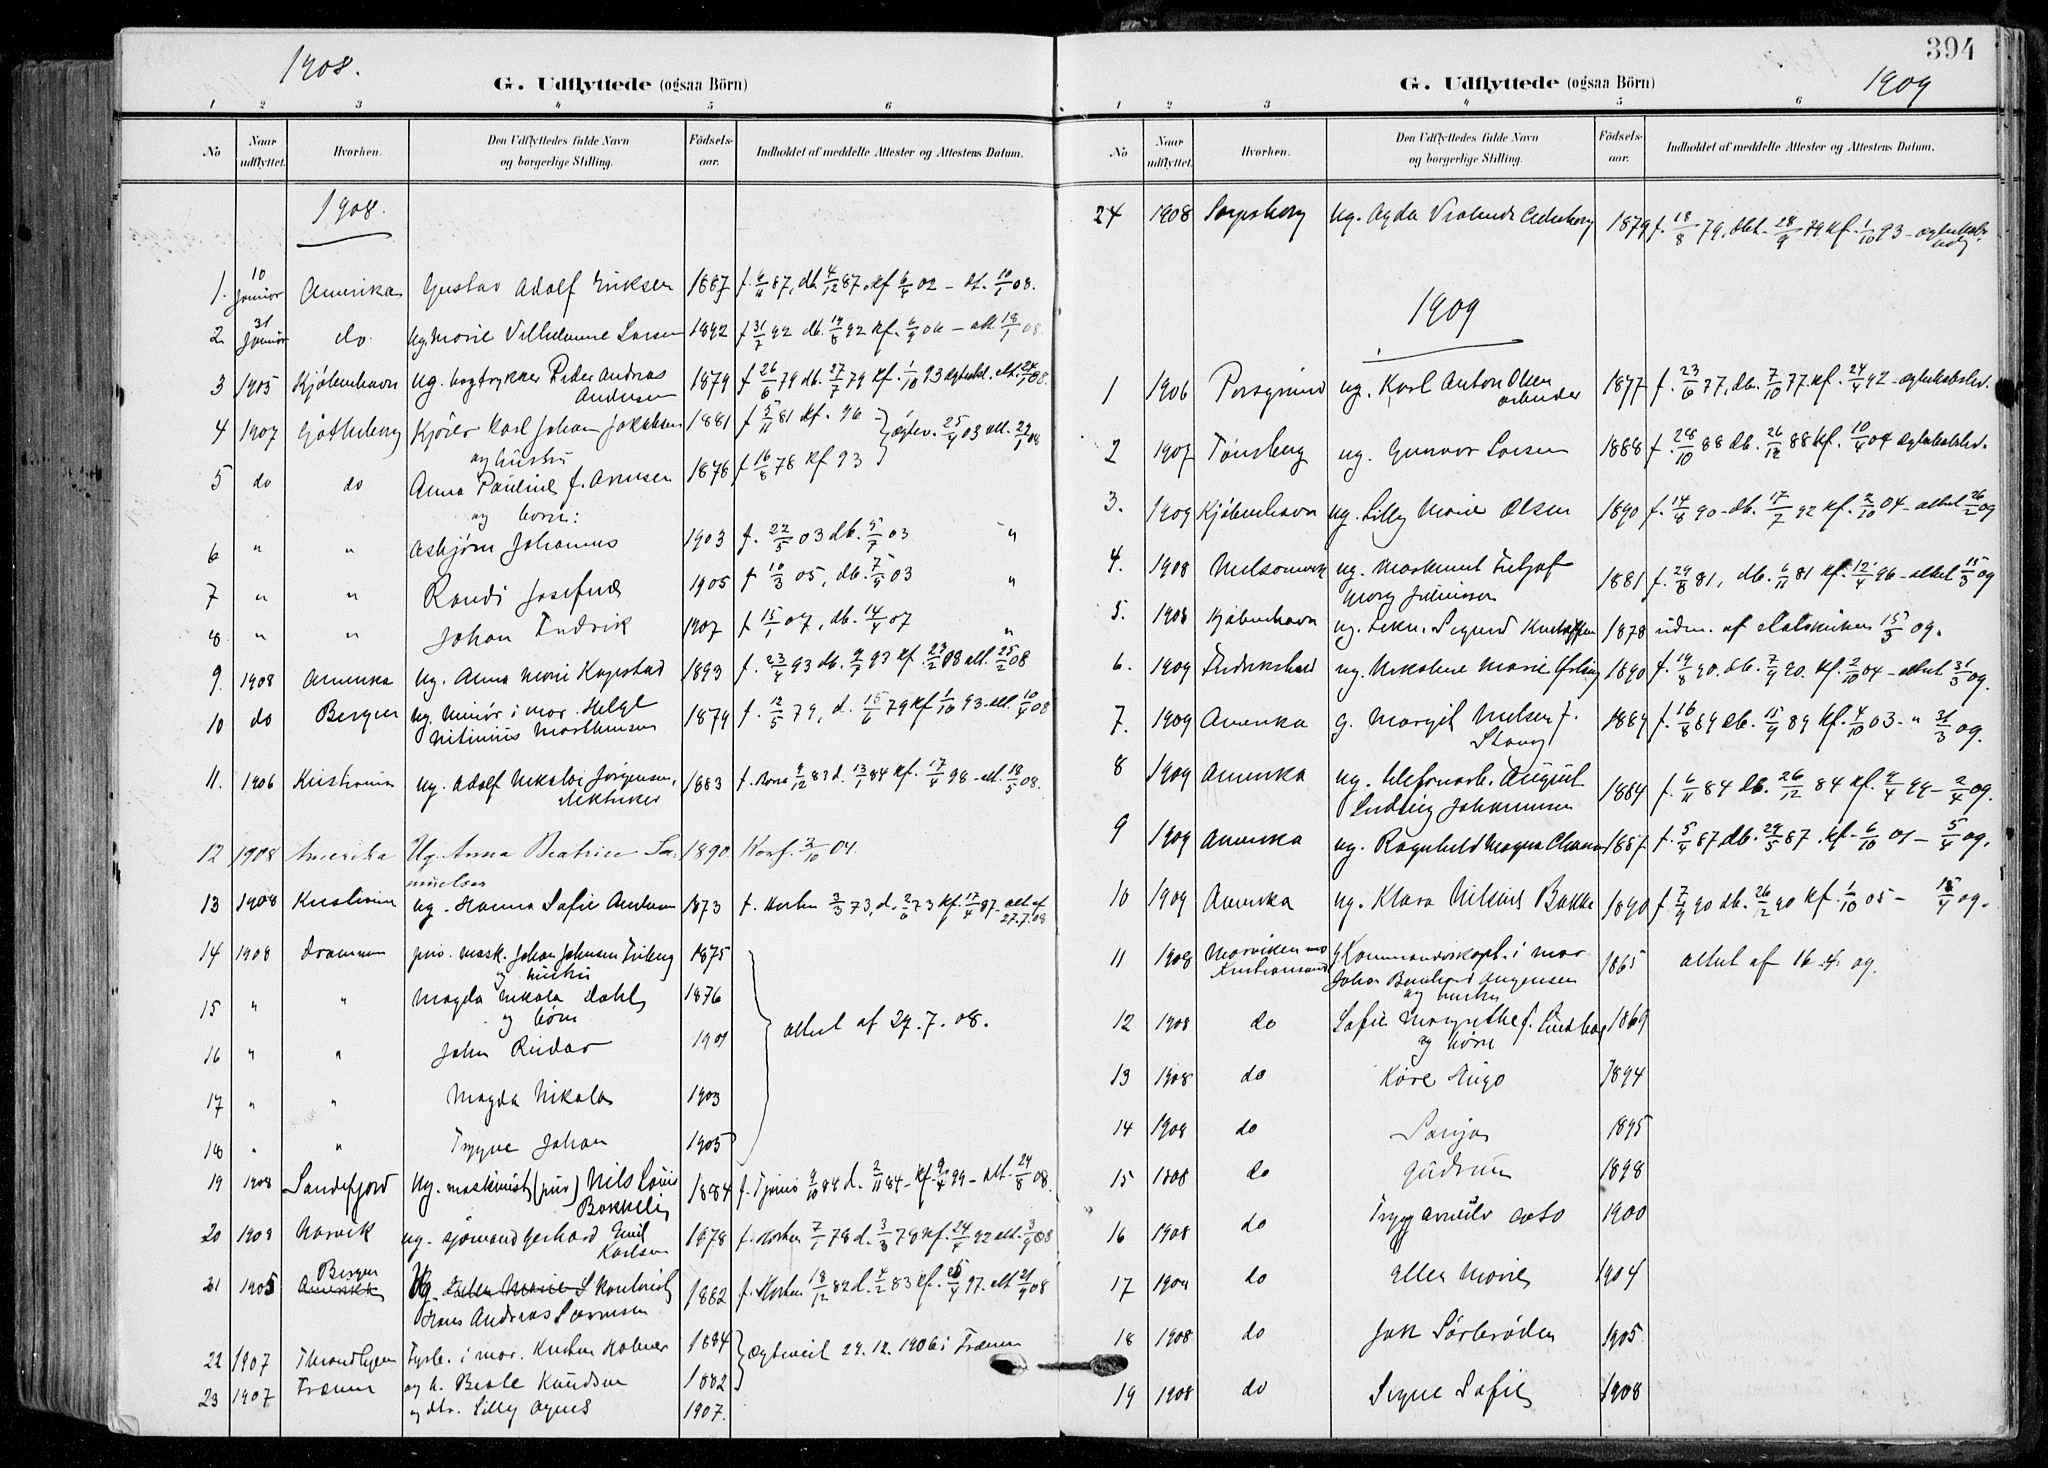 1908.
G. Udflyttede (ogsaa Börn)
1 2 3 4 5 6
No
Naar udflyttet.
Hvorhen.
Den Udflyttedes fulde Navn og borgerlige Stilling.
Födsels-aar.
Indholdet af meddelte Attester og Attestens Datum.
1908.
1. 10 Januar Amerika Gustav Adolf Eriksen 1887 f. 6/11 87, db. 4/12 87, kf 6/4 02 – att. 10/1 08.
2 31 Januar do. ug. Marie Vilhelmine Larsen 1892 f 31/7 92 db. 14/8 92 kf. – att. 18/1 08.
3 1905 Kjöbenhavn ug. bogtrykker Peder Andreas 1879 f 26/6 79 db. 27/7 79 kf. 1/10 93 att. 24/1 08.
Andersen
4 1907 Karl Johan Jakobsen 1881 f 5/11 81 kf. 96 25/4 03 att. 29/1 08
og hustru
5 do do Anna Pauline f. Arnesen 1878 f 16/8 78 kf 93
og börn:
6 " " Asbjörn Johannes 1903 f. 22/5 03 db. 5/7 03 "
7 " " Randi Josefine 1905 f 10/3 05, db. 7/5 03 "
8 " " Johan Fredrik 1907 f 15/1 07, db. 14/4 07 "
9. 1908 Amerika ug. Anna Marie 1893 f. 23/4 93 db. 9/7 93 kf. 23/2 08 att. 25/2 08
10 do Bergen ug. i mar. Helge 1879 f. 12/5 79, d. 15/6 79 kf 1/10 93 – att. 10/4 08
Marthinsen
11. 1906 Kristiania ug. Adolf Nikolai Jörgensen, 1883 f. Borre 9/12 83 d. 13/1 84 kf. 17/4 98 – att. 18/5 08.
elektriker
12 1908 Amerika Ug. Anna Beatrice Sa- 1890. Konf. 2/10 04.
muelsen
13 1908 Kristiania ug. Hanna Sofie Andersen 1873 f. Horten 3/3 73, d. 2/6 73 kf. 17/4 87. att. af 27.7.08
14 1908 Drammen mask. Johan Johnsen 1875
og hustru
15 " " Magda Nikola Dahl 1876
og börn
attest af 27.7.08.
16 " " John Reidar 1901
17 " " Magda Nikola 1903
18 " " Trygve Johan 1905
19 1908 Sandefjord Ug. maskinist (priv) Nils Louis 1884 f. Tjömö 9/10 84 d. 2/11 84 – kf. 9/4 99 – att. 24/8 08.
20 1908 Narvik ug. sjömand Gerhard Emil 1878 f. Horten 7/1 78 d. 3/3 78 kf. 24/4 92 att. 3/9 08
Karlsen
21 1905 Bergen Amerika Ug. 1882 f. Horten 18/12 82 d. 4/2 83 kf. 25/4 97. att 21/9 08
Hans Andreas Sörensen
22 1907 Throndhjem Fyrb. i mar. 1884 Egteviet 29.12.1906 i
23 1907 og h. Knudsen 1882
og dtr. Lilly Agnes 1907.
394
1909
G. Udflyttede (ogsaa Börn)
1 2 3 4 5 6
No
Naar udflyttet.
Hvorhen.
Den Udflyttedes fulde Navn og borgerlige Stilling.
Födsels-aar.
Indholdet af meddelte Attester og Attestens Datum.
24 1908 Sarpsborg ug. Agda 1879 f. 18/8 79, dbt. 28/9 79 kf. 1/10 93 –
1909
1 1906 Porsgrund ug. Karl Anton Olsen 1877 f. 23/6 77, db. 7/10 77. kf. 24/4 92 –
arbeider
2 1907 Tönsberg ug. Gunvor Larsen 1888 f. 28/10 88 db. 26/12 88 kf. 10/4 04
3. 1909 Kjöbenhavn ug. Lilly Marie Olsen 1890 f. 14/8 90 – db. 17/7 92 kf. 2/10 04 – attest 26/2 09
4. 1908 Melsomvik ug. Maskinist 1881 f. 29/8 81, db. 6/11 81 kf. 12/4 96 – attest 15/3 09
5. 1908 Kjöbenhavn ug. Sigurd 1878 udm. af statskirken 15/3 09.
6. 1909 Fredrikstad ug. Nikoline Marie 1890 f. 19/8 90. db. 7/9 90. kf. 2/10 04 – attest 31/3 09.
7. 1909 Amerika g. Margit Nielsen f. 1889 f. 16/8 89 db. 15/9 89 kf. 4/10 03 – " 31/3 09.
Stang
8 1909 Amerika ug. telefonarb. August 1884 f. 6/11 84 db. 26/12 84 kf. 9/4 99 – 2/4 09.
Ludvig Johannesen
9 1909 Amerika ug. Ragnhild Magna 1887 f. 5/4 87 db. 29/5 87, kf. 6/10 01 – 5/4 09.
10 1909 Amerika ug. Klara Bakke 1890 f. 7/9 90 db. 26/12 90 kf. 1/10 05 – 15/4 09.
11 1908 Marviken ved g. Kommandörkapt. i mar 1865 attest af 16.4.09.
Kristiansand Johan Bernhard
og hustru
12 1908 do Sofie Margrethe f. 1869
og börn
13 1908 do Kåre Hugo 1894
14 1908 do Sonja 1895
15 1808 do Gudrun 1898
16 1908 do Trygg 1900
17 1908 do Ellen Marie 1904
18 1908 do 1905.
19 1908 do Signe Sofie 1908